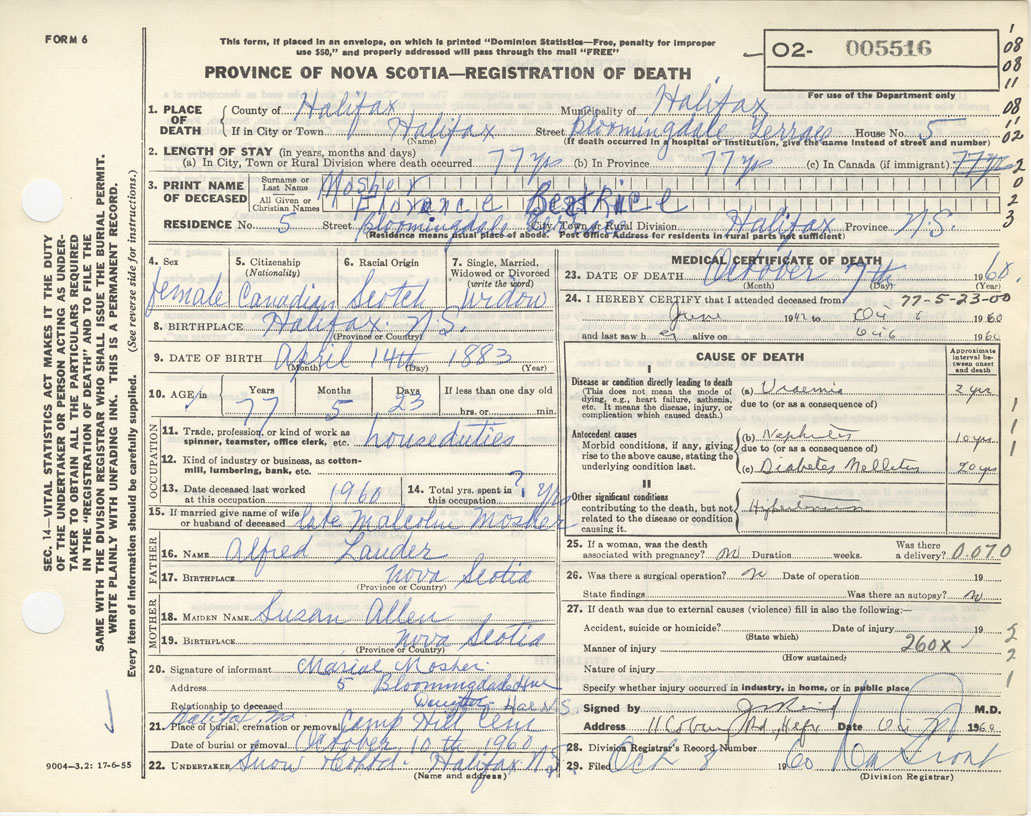 FORM 6
This form, if placed in an envelope, on which is printed "Dominion Statistics—Free, penalty for improper
use $50," and properly addressed will pass through the mail "FREE"
O2- 005516
For use of the Department only
PROVINCE OF NOVA SCOTIA—REGISTRATION OF DEATH
1. PLACE OF DEATH
County of Halifax Municipality of Halifax
If in City or Town Halifax Street Bloomingdale Terrace House No. 5
(Name) (If death occurred in a hospital or institution, give the name instead of street and number)
2. LENGTH OF STAY (in years, months and days)
(a) In City, Town or Rural Division where death occurred 77 yrs (b) In Province 77 yrs (c) In Canada (if immigrant) 77 yrs
3. PRINT NAME OF DECEASED
Surname or Last Name Mosher
All Given or Christian Names Florence Beatrice
RESIDENCE No. 5 Street Bloomingdale City, Town or Rural Division Halifax Province N.S.
(Residence means usual place of abode. Post Office Address for residents in rural parts not sufficient)
4. Sex female
5. Citizenship (Nationality) Canadian
6. Racial Origin Scotch
7. Single, Married, Widowed or Divorced (write the word) Widow
8. BIRTHPLACE Halifax N.S.
(Province or Country)
9. DATE OF BIRTH April 14th 1883
(Month) (Day) (Year)
10. AGE in Years 77 Months 5 Days 23 If less than one day old
hrs. or min.
OCCUPATION
11. Trade, profession, or kind of work as spinner, teamster, office clerk, etc. houseduties
12. Kind of industry or business, as cotton-mill, lumbering, bank, etc.
13. Date deceased last worked at this occupation 1960
14. Total yrs. spent in this occupation ? yrs
15. If married give name of wife or husband of deceased late Malcolm Mosher
FATHER
16. NAME Alfred Lauder
17. BIRTHPLACE Nova Scotia
(Province or Country)
MOTHER
18. MAIDEN NAME Susan Allen
19. BIRTHPLACE Nova Scotia
(Province or Country)
20. Signature of informant Mosher
Address 5 Bloomingdale
Relationship to deceased Daughter
21. Place of burial, cremation or removal Camp Hill Cem
Date of burial or removal October 10th 1960
22. UNDERTAKER Snow Halifax N.S.
(Name and address)
MEDICAL CERTIFICATE OF DEATH
23. DATE OF DEATH October 7th 1960
(Month) (Day) (Year)
77-5-23-00
24. I HEREBY CERTIFY that I attended deceased from
June to Oct 6 1960
and last saw h er alive on Oct 6 1960
CAUSE OF DEATH
Approximate interval between onset and death
I
Disease or condition directly leading to death
(This does not mean the mode of dying, e.g., heart failure, asthenia, etc. It means the disease, injury, or complication which caused death.)
(a) Uraemia 2 yrs
due to (or as a consequence of)
Antecedent causes
Morbid conditions, if any, giving rise to the above cause, stating the underlying condition last.
(b) Nephritis 10 yrs
due to (or as a consequence of)
(c) Diabetes Mellitus 20 yrs
II
Other significant conditions
contributing to the death, but not related to the disease or condition causing it.
Hypertension
25. If a woman, was the death associated with pregnancy? no Duration weeks. Was there a delivery? 0.070
26. Was there a surgical operation? n Date of operation 19
State findings Was there an autopsy? n
27. If death was due to external causes (violence) fill in also the following:—
Accident, suicide or homicide? Date of injury 19
(State which)
Manner of injury 260X
(How sustained)
Nature of injury
Specify whether injury occurred in industry, in home, or in public place
Signed by Reid M.D.
Address Rd, Hfx Date Oct 7 1960
28. Division Registrar's Record Number
29. Filed Oct 8 1960
(Division Registrar)
SEC. 14—VITAL STATISTICS ACT MAKES IT THE DUTY
OF THE UNDERTAKER OR PERSON ACTING AS UNDER-
TAKER TO OBTAIN ALL THE PARTICULARS REQUIRED
IN THE "REGISTRATION OF DEATH" AND TO FILE THE
SAME WITH THE DIVISION REGISTRAR WHO SHALL ISSUE THE BURIAL PERMIT.
WRITE PLAINLY WITH UNFADING INK. THIS IS A PERMANENT RECORD.
Every item of information should be carefully supplied. (See reverse side for instructions.)
9004—3.2: 17-6-55